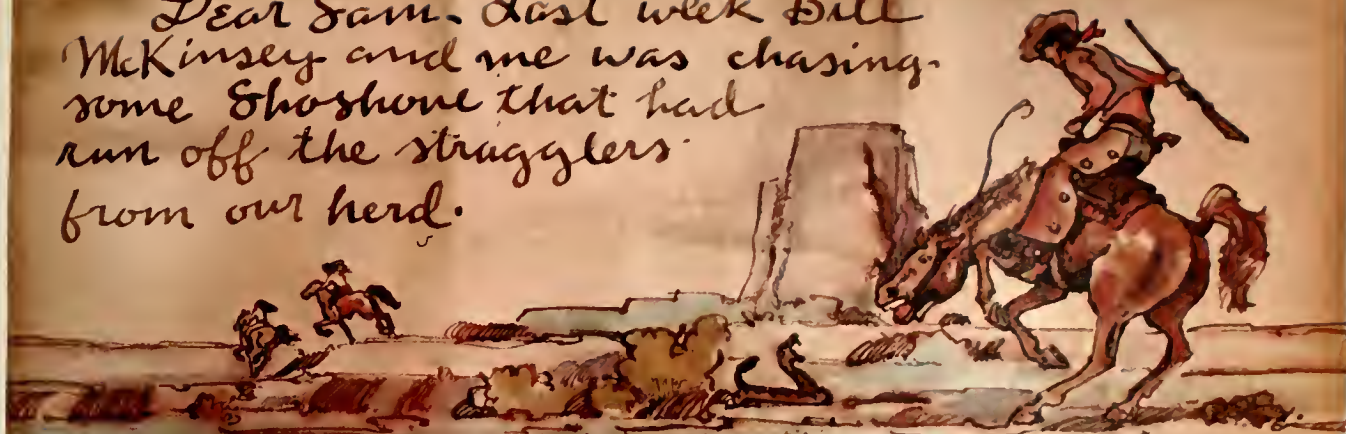 Dear Sam. Last week Bill
McKinsey and me was chasing
some Shoshone that had
run off the stragglers
from our herd.